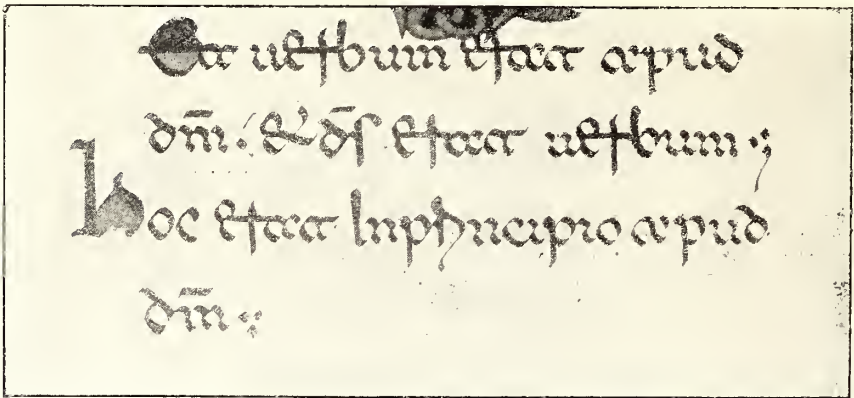 Et uerbum erat apud
dm̄ ./ & ds̄ erat uerbum ·,·
Hoc erat Inprincipio apud
dm̄ ·,·